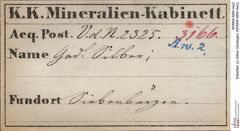 K.K. Mineralien-Kabinett.
Acq. Post. V.d.N.2325. 3166.
A.v.2
Name Ged. Silber;
Fundort Siebenbürgen.